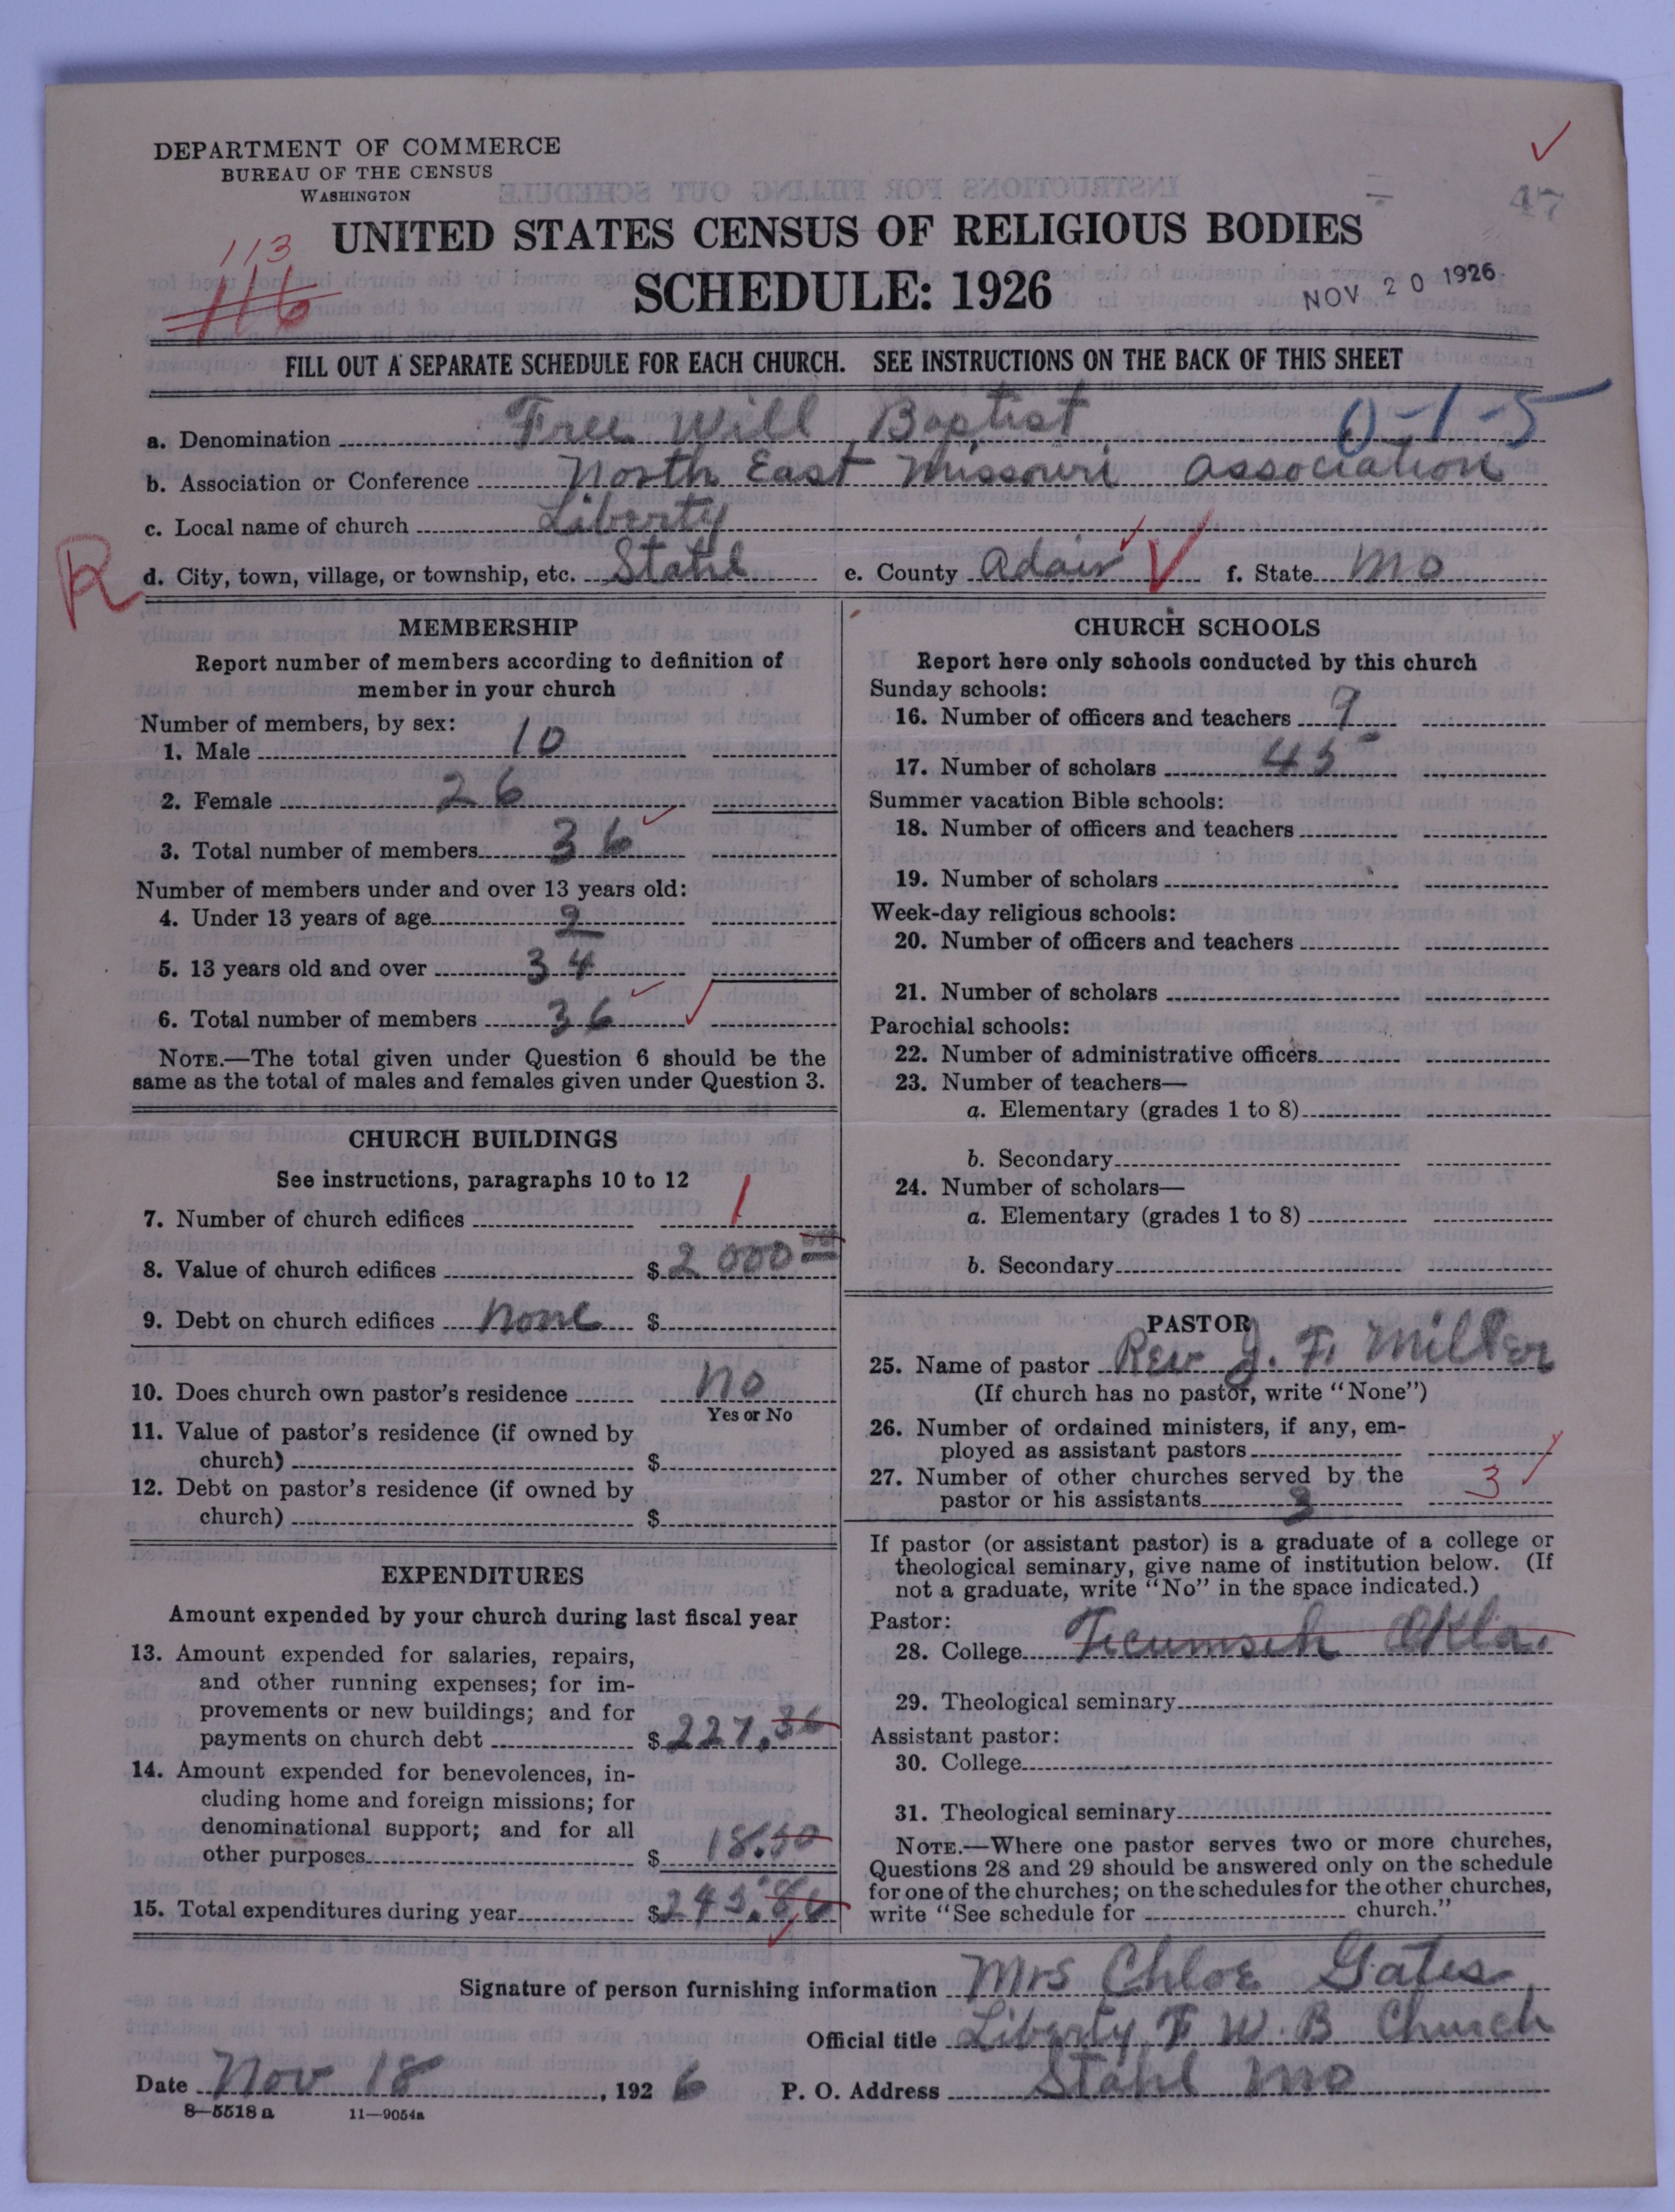 DEPARTMENT OF COMMERCE
BUREAU OF THE CENSUS
WASHINGTON
47
113
116
UNITED STATES CENSUS OF RELIGIOUS BODIES
SCHEDULE: 1926
NOV 20 1926
FILL OUT A SEPARATE SCHEDULE FOR EACH CHURCH. SEE INSTRUCTIONS ON THE BACK OF THIS SHEET
a. Denomination Free Will Baptist 0-1-5
b. Association or Conference North East Missouri Association
c. Local name of church Liberty
R
d. City, town, village, or township, etc. Stahl e. County Adair f. State Mo
MEMBERSHIP
Report number of members according to definition of
member in your church
Number of members, by sex:
1. Male 10
2. Female 26
3. Total number of members 36
Number of members under and over 13 years old:
4. Under 13 years of age 2
5. 13 years old and over 34
6. Total number of members 36
NOTE.—The total given under Question 6 should be the
same as the total of males and females given under Question 3.
CHURCH BUILDINGS
See instructions, paragraphs 10 to 12
7. Number of church edifices 1
8. Value of church edifices $2000 00
9. Debt on church edifices None $
10. Does church own pastor's residence No
Yes or No
11. Value of pastor's residence (if owned by
church) $
12. Debt on pastor's residence (if owned by
church) $
EXPENDITURES
Amount expended by your church during last fiscal year
13. Amount expended for salaries, repairs,
and other running expenses; for im-
provements or new buildings; and for
payments on church debt $227.36
14. Amount expended for benevolences, in-
cluding home and foreign missions; for
denominational support; and for all
other purposes $18.50
15. Total expenditures during year $245.86
CHURCH SCHOOLS
Report here only schools conducted by this church
Sunday schools:
16. Number of officers and teachers 9
17. Number of scholars 45
Summer vacation Bible schools:
18. Number of officers and teachers
19. Number of scholars
Week-day religious schools:
20. Number of officers and teachers
21. Number of scholars
Parochial schools:
22. Number of administrative officers
23. Number of teachers—
a. Elementary (grades 1 to 8)
b. Secondary
24. Number of scholars—
a. Elementary (grades 1 to 8)
b. Secondary
PASTOR
25. Name of pastor Rev J. F. Miller
(If church has no pastor, write "None")
26. Number of ordained ministers, if any, em-
ployed as assistant pastors
27. Number of other churches served by the
pastor or his assistants 3 3
If pastor (or assistant pastor) is a graduate of a college or
theological seminary, give name of institution below. (If
not a graduate, write "No" in the space indicated.)
Pastor:
28. College Ticumseh Okla.
29. Theological seminary
Assistant pastor:
30. College
31. Theological seminary
NOTE.—Where one pastor serves two or more churches,
Questions 28 and 29 should be answered only on the schedule
for one of the churches; on the schedules for the other churches,
write "See schedule for church."
Signature of person furnishing information Mrs Chloe Gates
Official title Liberty F W. B Church
Date Nov 18, 1926 P. O. Address Stahl Mo
8—5518a 11—9054a